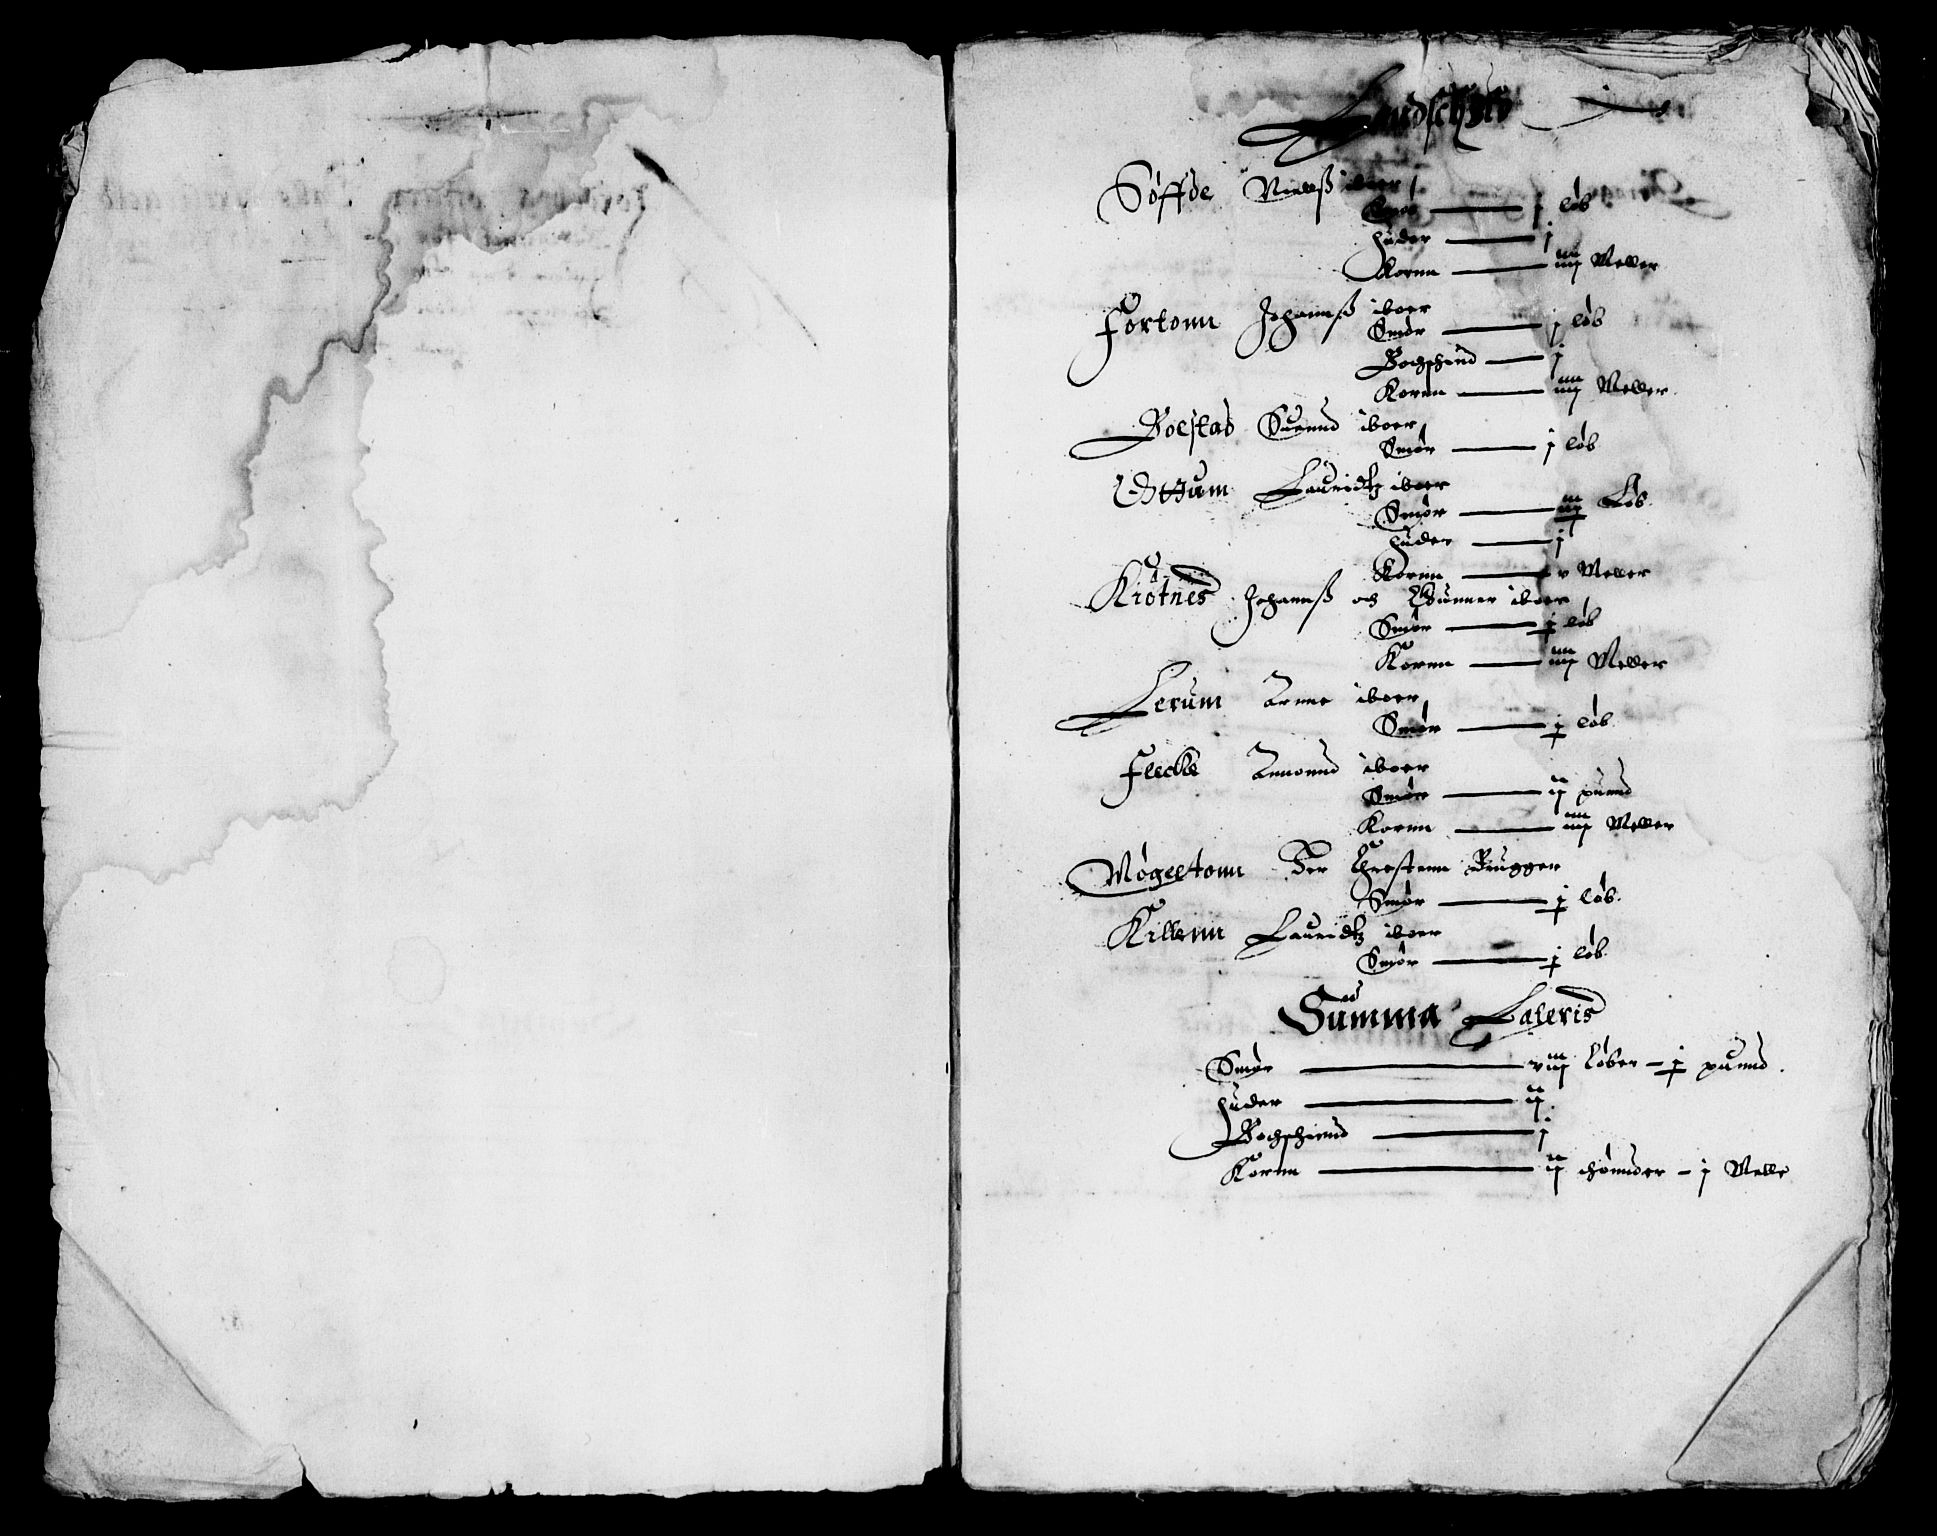 Landschyld
Søffde Nielß iboer
Smør — j løb
Huder — j
Kornn — iiij Meller
Fortonn Johannß iboer
Smør — j løb
Bochschind — j
Kornn — iiij Meller
Bolstad Suennd iboer
Smør — j løb
Ottum Lauridtz iboer
Smør — iiij Løb
Huder — j
Kornn — v Meller
Krötnes Johannß och Gunner iboer
Smør — j løb
Kornn — iiij Meller
Lerum Arnne iboer
Smør — j løb
Flecke Amound iboer
Smør — ij punnd
Kornn — iiij Meller
Møgeltonn Her Chrestenn Brugger
Smør — j løb
Killenn Lauridtz iboer
Smør — j løb
Summa Lateris
Smør — viij løber – j punnd
Huder — ij
Bochschinnd — j
Kornn — ij thønnder – j Melle